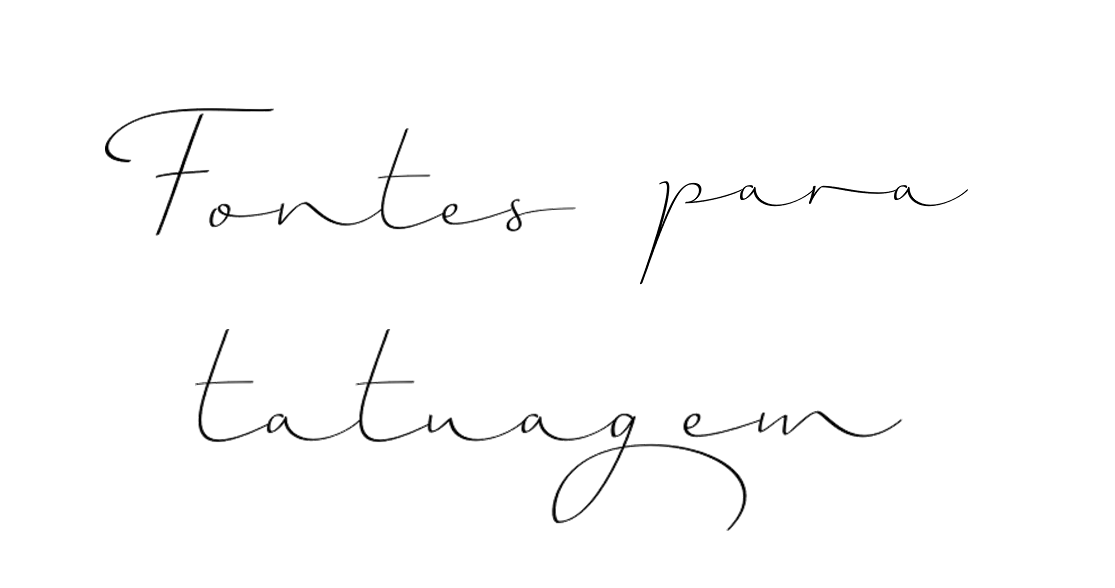 Fontes para
tatuagem